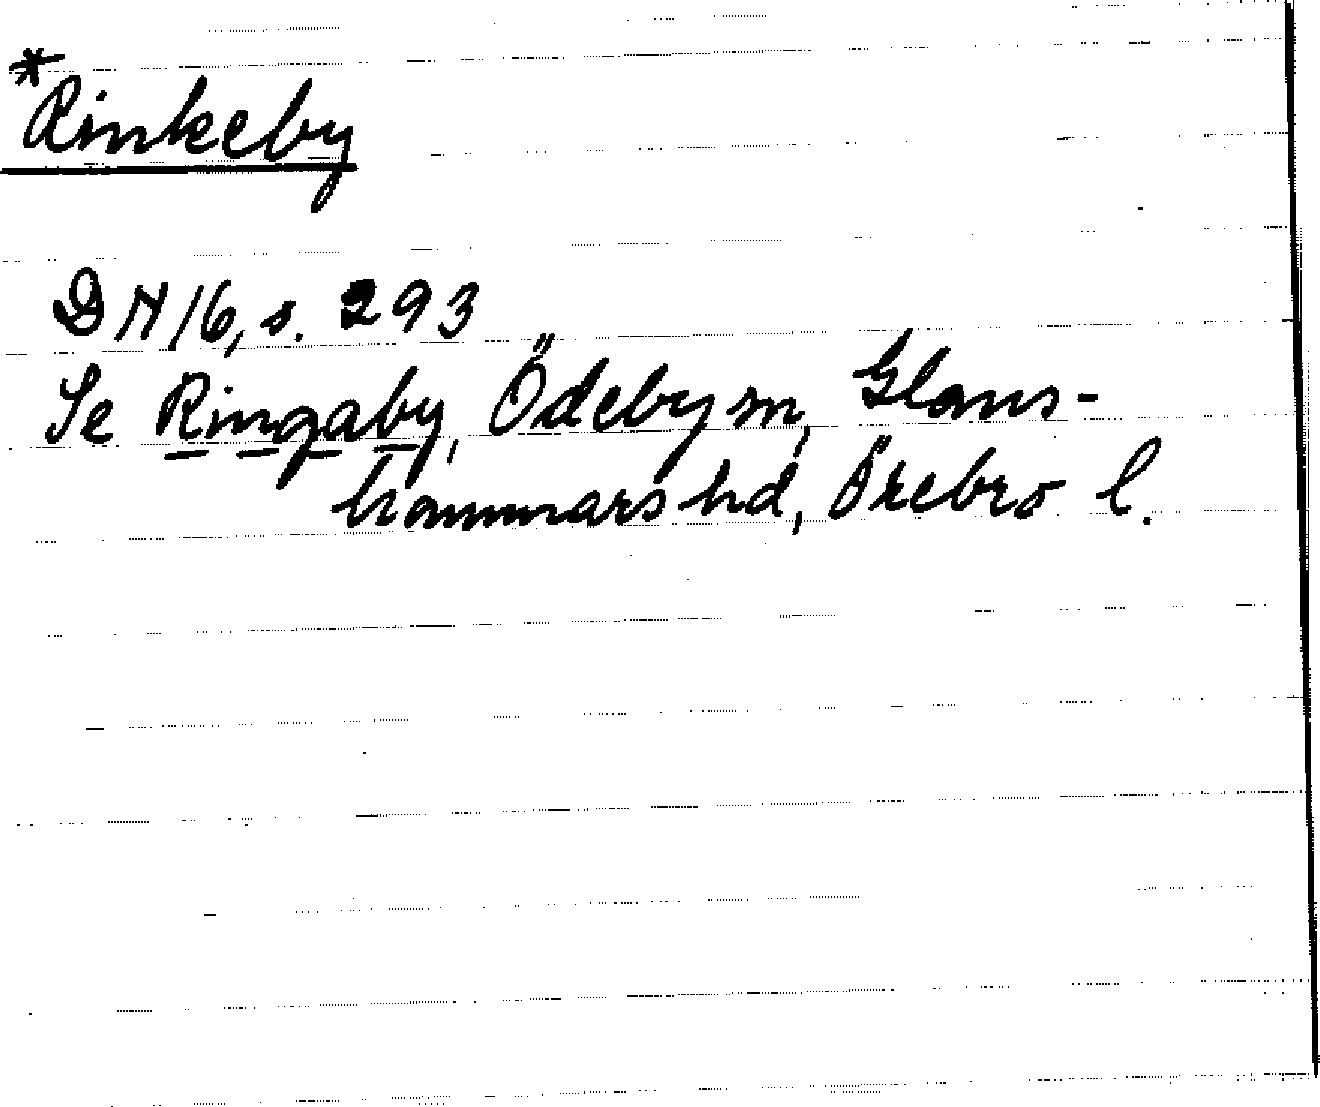 *Rinkeby
DN 16, s. 293
Se Ringaby, Ödeby sn, Glans-
hammars hd, Örebro l.